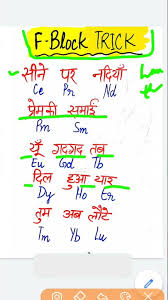 F-Block TRICK
सीने पर नदियाँ
Ce Pr Nd
प्रेमकी समाई
Pm Sm
यूँ गदगद तब
Eu Gd Tb
दिल हुआ यार
Dy Ho Er
तुम अब लौटे
Tm Yb Lu